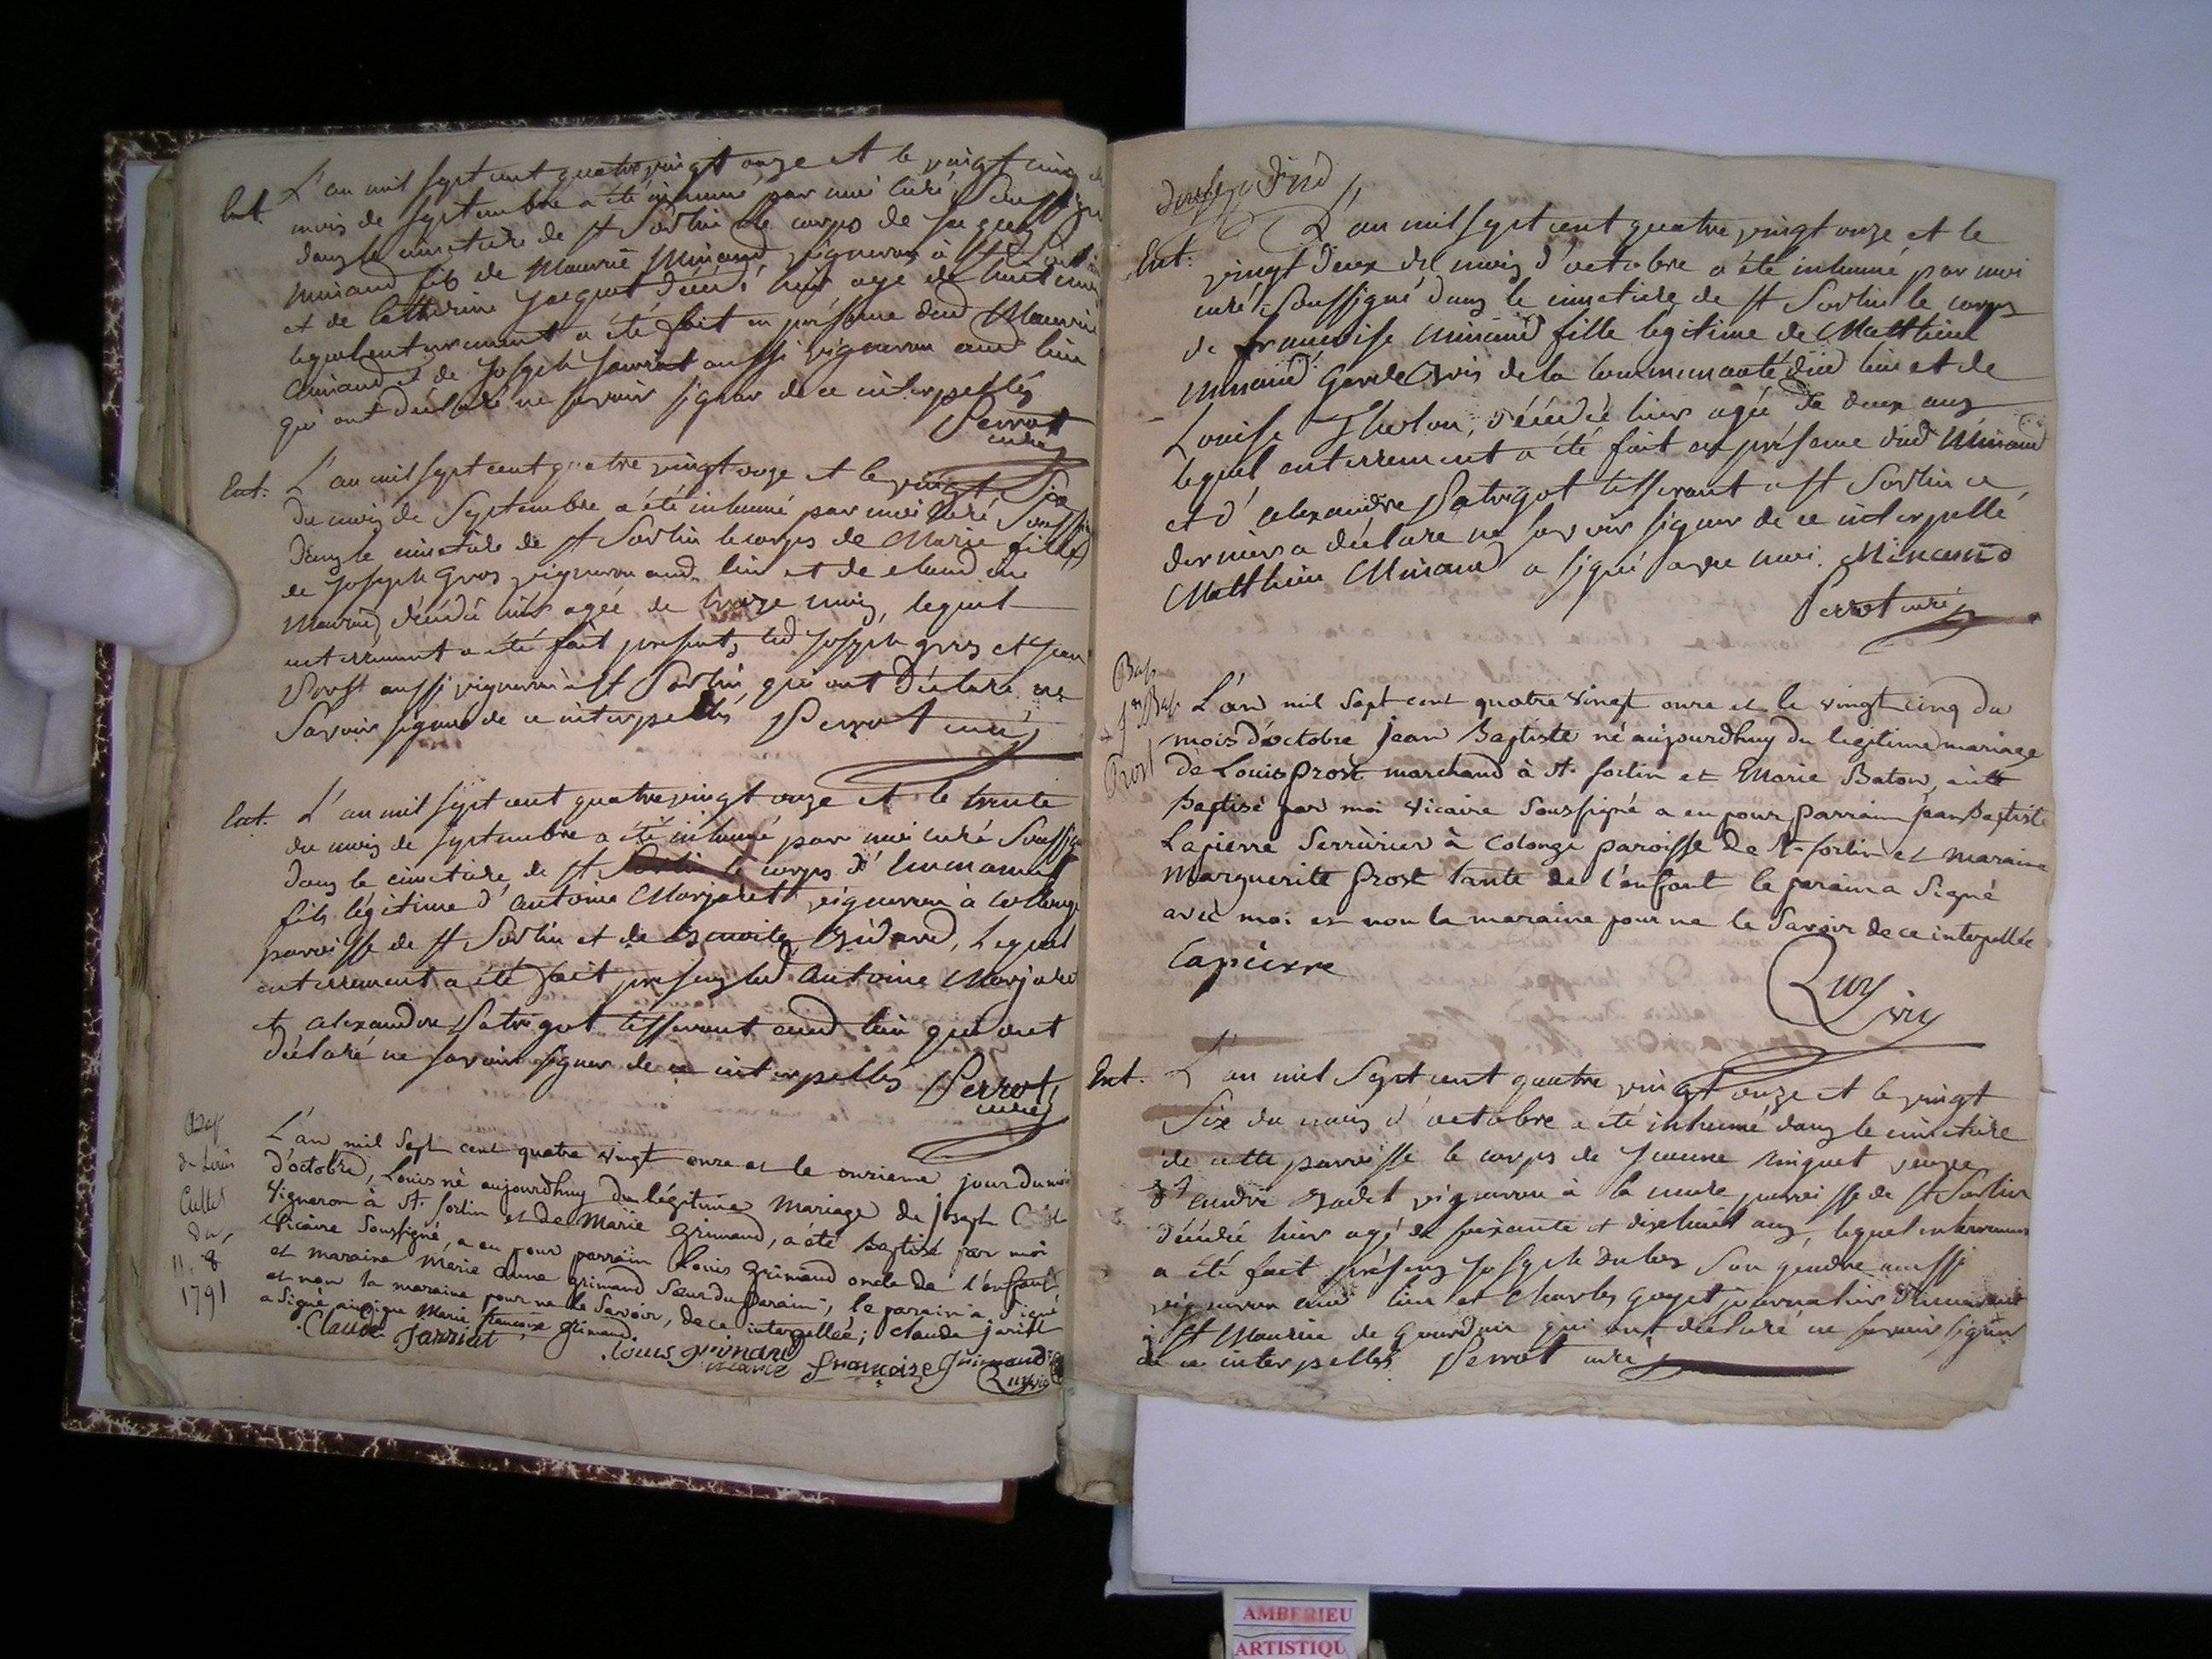 Ent. L'an mil sept cent quatre vingt onze et le vingt cinq
mois de septembre a été inhumé par moi curé
dans le cimetière de st Sorlin le corps de Jacques
Minand fils de Maurice Minand vigneron à st
et de Catherine Jacquet décédé hier agé de huit
lequel enterrement a été fait en présence dud Maurice
Minand et de Joseph aussi vigneron aud lieu
qui ont déclaré ne savoir signer de ce interpellés
Perrot
curé
Ent. L'an mil sept cent quatre vingt onze et le vingt six
du mois de Septembre a été inhumé par moi curé
dans le cimetière de st Sorlin le corps de Marie fille
de Joseph Gros vigneron aud. lieu et de
décédé hier agée de mois, lequel
enterrement a été fait présents led Joseph gros et Jean
Prost aussi vigneron à st Sorlin, qui ont déclaré ne
Savoir signer de ce interpellés Perrot curé
Ent. L'an mil sept cent quatre vingt onze et le trente
du mois de septembre a été inhumé par moi curé
dans le cimetière de st Sorlin le corps d'
fils légitime d'antoine Marjaret vigneron à
paroisse de st Sorlin et de benoite, Lequel
enterrement a été fait présens led antoine
et alexandre Patrigot tisserant aud lieu qui ont
déclaré ne savoir signer de ce interpellés Perrot
curé
de Louis
du
11. 8
1791
L'an mil sept cent quatre vingt onze et le onzieme jour du
d'octobre, Louis né aujourdhuy du légitime mariage de joseph
vigneron à st. sorlin et de Marie Grimand, a été baptisé par moi
vicaire Soussigné, a eu pour parrain Louis Grimand oncle de l'enfant
et maraine Marie anne grimand Soeur du parain, le parain a signé
et non la maraine pour ne le Savoir, de ce interpellée; claude
a signé ainsi que Marie francoise grimand.
Claude Jarriat Louis grimand
marie françoise grimand
L'an mil sept cent quatre vingt onze et le
Ent. vingt deux du mois d'octobre a été inhumé par moi
curé Soussigné dans le cimetière de st Sorlin le corps
de francoise Minand fille légitime de Matthieu
Minand Garde de la Communauté dud lieu et de
Louise, décédée hier agée de deux ans
lequel enterrement a été fait en présence dud Minand
et d'alexandre Patrigot tisserant a st Sorlin ce
dernier a déclaré ne savoir signer de ce interpellé
Matthieu Minand a signé avec moi. Minand
Perrot curé
Bap
jn Bap
Prost
L'an mil sept cent quatre vingt onze et le vingt cinq du
mois d'octobre jean Baptiste né aujourdhuy du legitime mariage
de Louis prost marchand à st. sorlin et Marie Baton,
baptisé par moi vicaire Soussigné a eu pour parrain jean baptiste
Lapierre Serrurier à Colonge paroisse de st sorlin et maraine
Marguerite prost tante de l'enfant le parain a Signé
avec moi et non la maraine pour ne le Savoir de ce interpellée
Lapierre
Ent. L'an mil Sept cent quatre vingt onze et le vingt
Six du mois d'octobre a été inhumé dans le cimetière
de cette paroisse le corps de Jeanne veuve
d'andré vigneron à la paroisse de st Sorlin
décédé hier agé de soixante et dixhuit ans, lequel enterrement
a été fait présens Joseph Son gendre aussi
vigneron aud lieu et Charles goyet journalier
à st Maurice de Gourdan qui ont déclaré ne savoir signer
de ce interpellés Perrot curé
AMBERIEU
ARTISTIQU